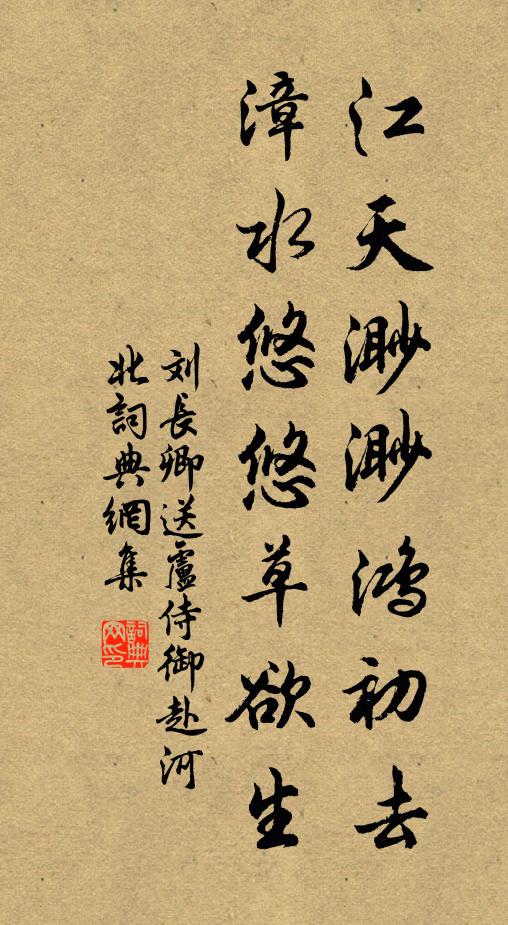 江天渺渺鸿初去
漳水悠悠草欲生
刘長卿送盧侍御赴河
北詞典網集
詞典
网印